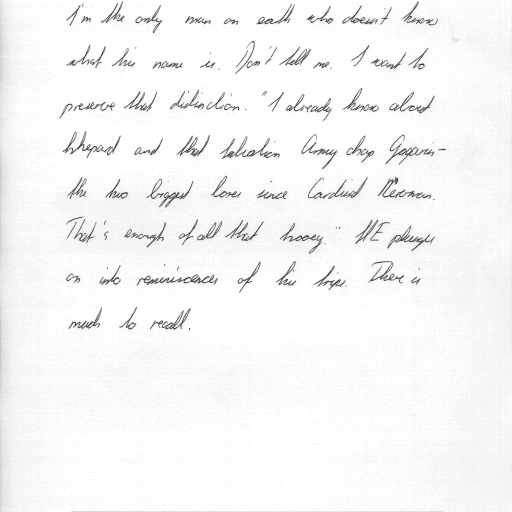 I'm the only man on eath who doesn't know
what his name is. Don't tell me. I want to
preserve that distinction. "I already know about
Shepard and that Salvation Army chap Gagarin-
the two biggest loves since Cardinal Newman.
That's enough of all that hooey." HE plunges
on into reminiscences of his trips. There is
much to recall.